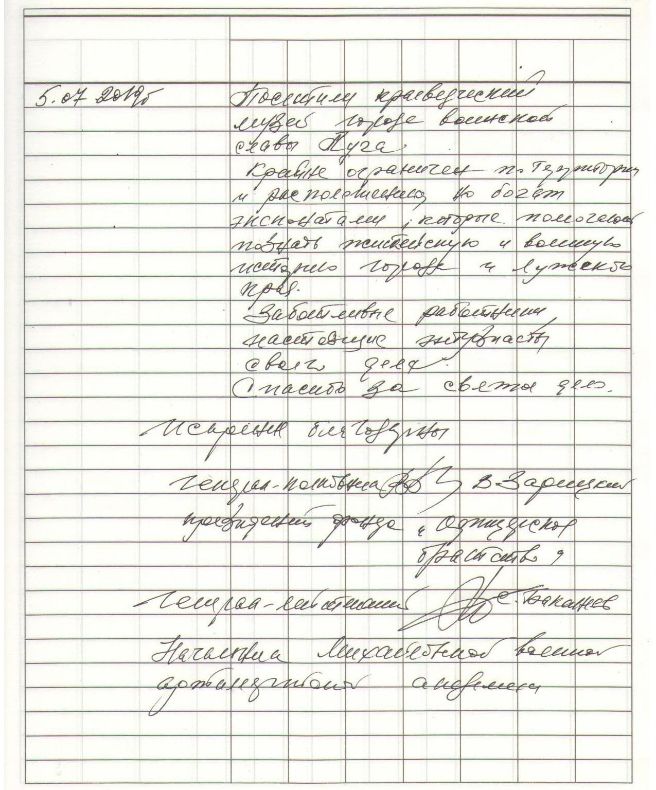 5.07 2019г
Посетили краеведческий
музей города воинской
славы Луга.
Крайне ограничен по территории
и расположению, но богат
экспонатами, которые помогают
познать житейскую и военную
историю города и Лужского
края.
Заботливые работники
настоящие энтузиасты
своего дела.
Спасибо за святое дело.
Искренне благодарны
Генерал-полковник В. Зарицкий
президент фонда „Офицерское
братство"
Генерал-лейтенант С. Баканеев
Начальник Михайловской военной
артиллерийской академии